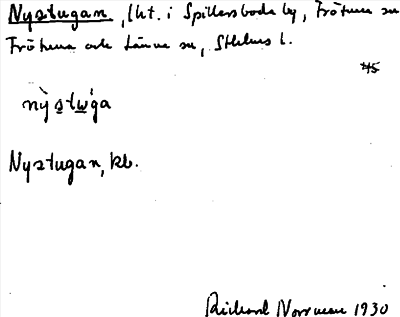 Nystugan, lht. i Spillersboda by, Frötuna sn
Frötuna och Länna sn, Sthlms l.
45
nỳstẃga
Nystugan, kb.
Rickard Norrman 1930